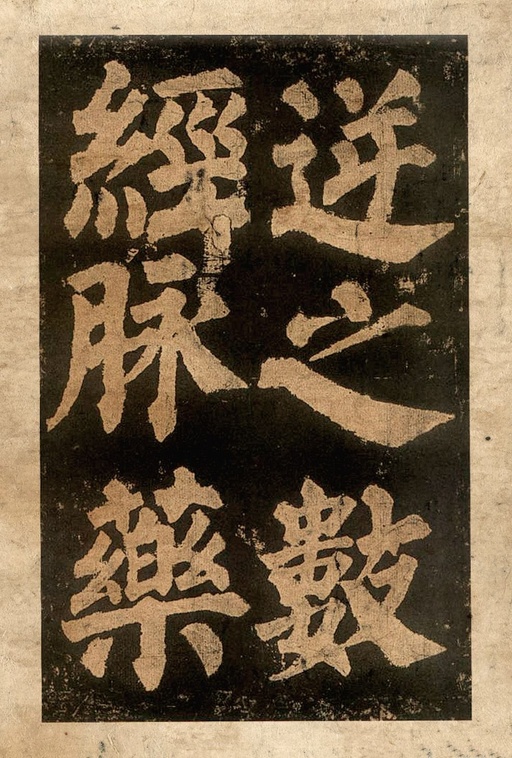 逆之數
經脈藥